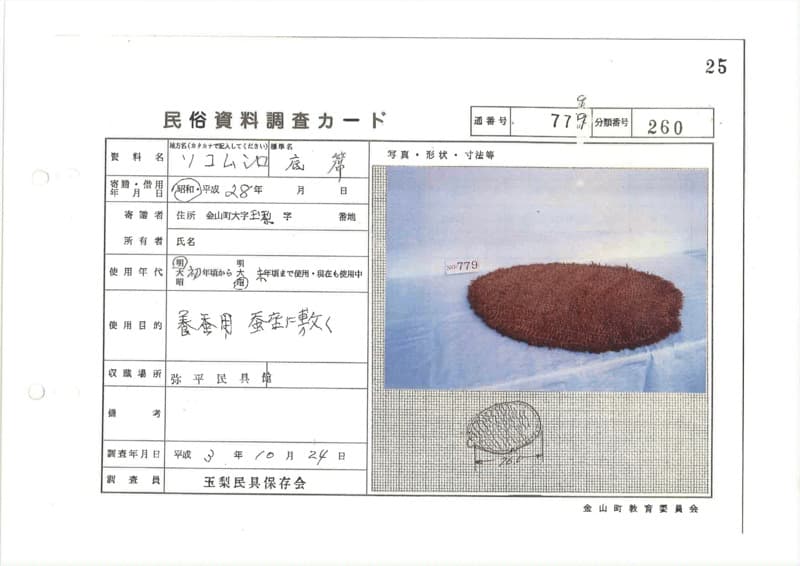 25
民俗資料調査カード
通番号 779 分類番号 260
資料名 地方名(カタカナで記入してください) ソコムシロ 標準名 底筵
写真・形状・寸法等
寄贈・借用年月日 昭和・平成 28年 月 日
寄贈者 住所 金山町大字玉梨 字 番地
所有者 氏名
使用年代 明大昭 初年頃から 明大昭 末年頃まで使用・現在も使用中
NO 779
使用目的 養蚕用 蚕座に敷く
収蔵場所 弥平民具館
備考
76.0
調査年月日 平成 3年 10月 24日
調査員 玉梨民具保存会
金山町教育委員会